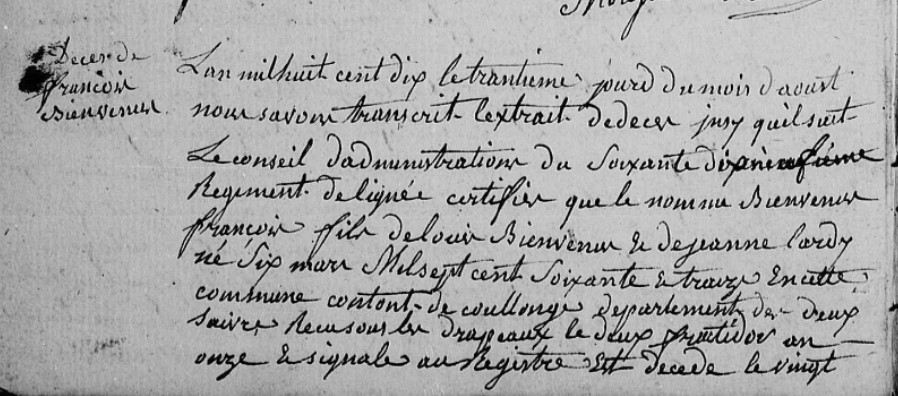 Deces de
françois
Bienvenus
Lan mil huit cent dix le trantieme jourd du mois d'aoust
nous avons transcrit lextrait de deces insy quil suit
Le conseil dadministrations du Soixante dixneufieme
Regiment de lignée certifier que le nommé Bienvenus
françois fils de louis Bienvenus & de jeanne lardy
né Six mars Mil sept cent Soixante & traize En cette
commune contont de coullonge departement des deux
saivre Recu sous les drapeaux le deux frutidor an
onze & signale au Registre Est decede le vingt